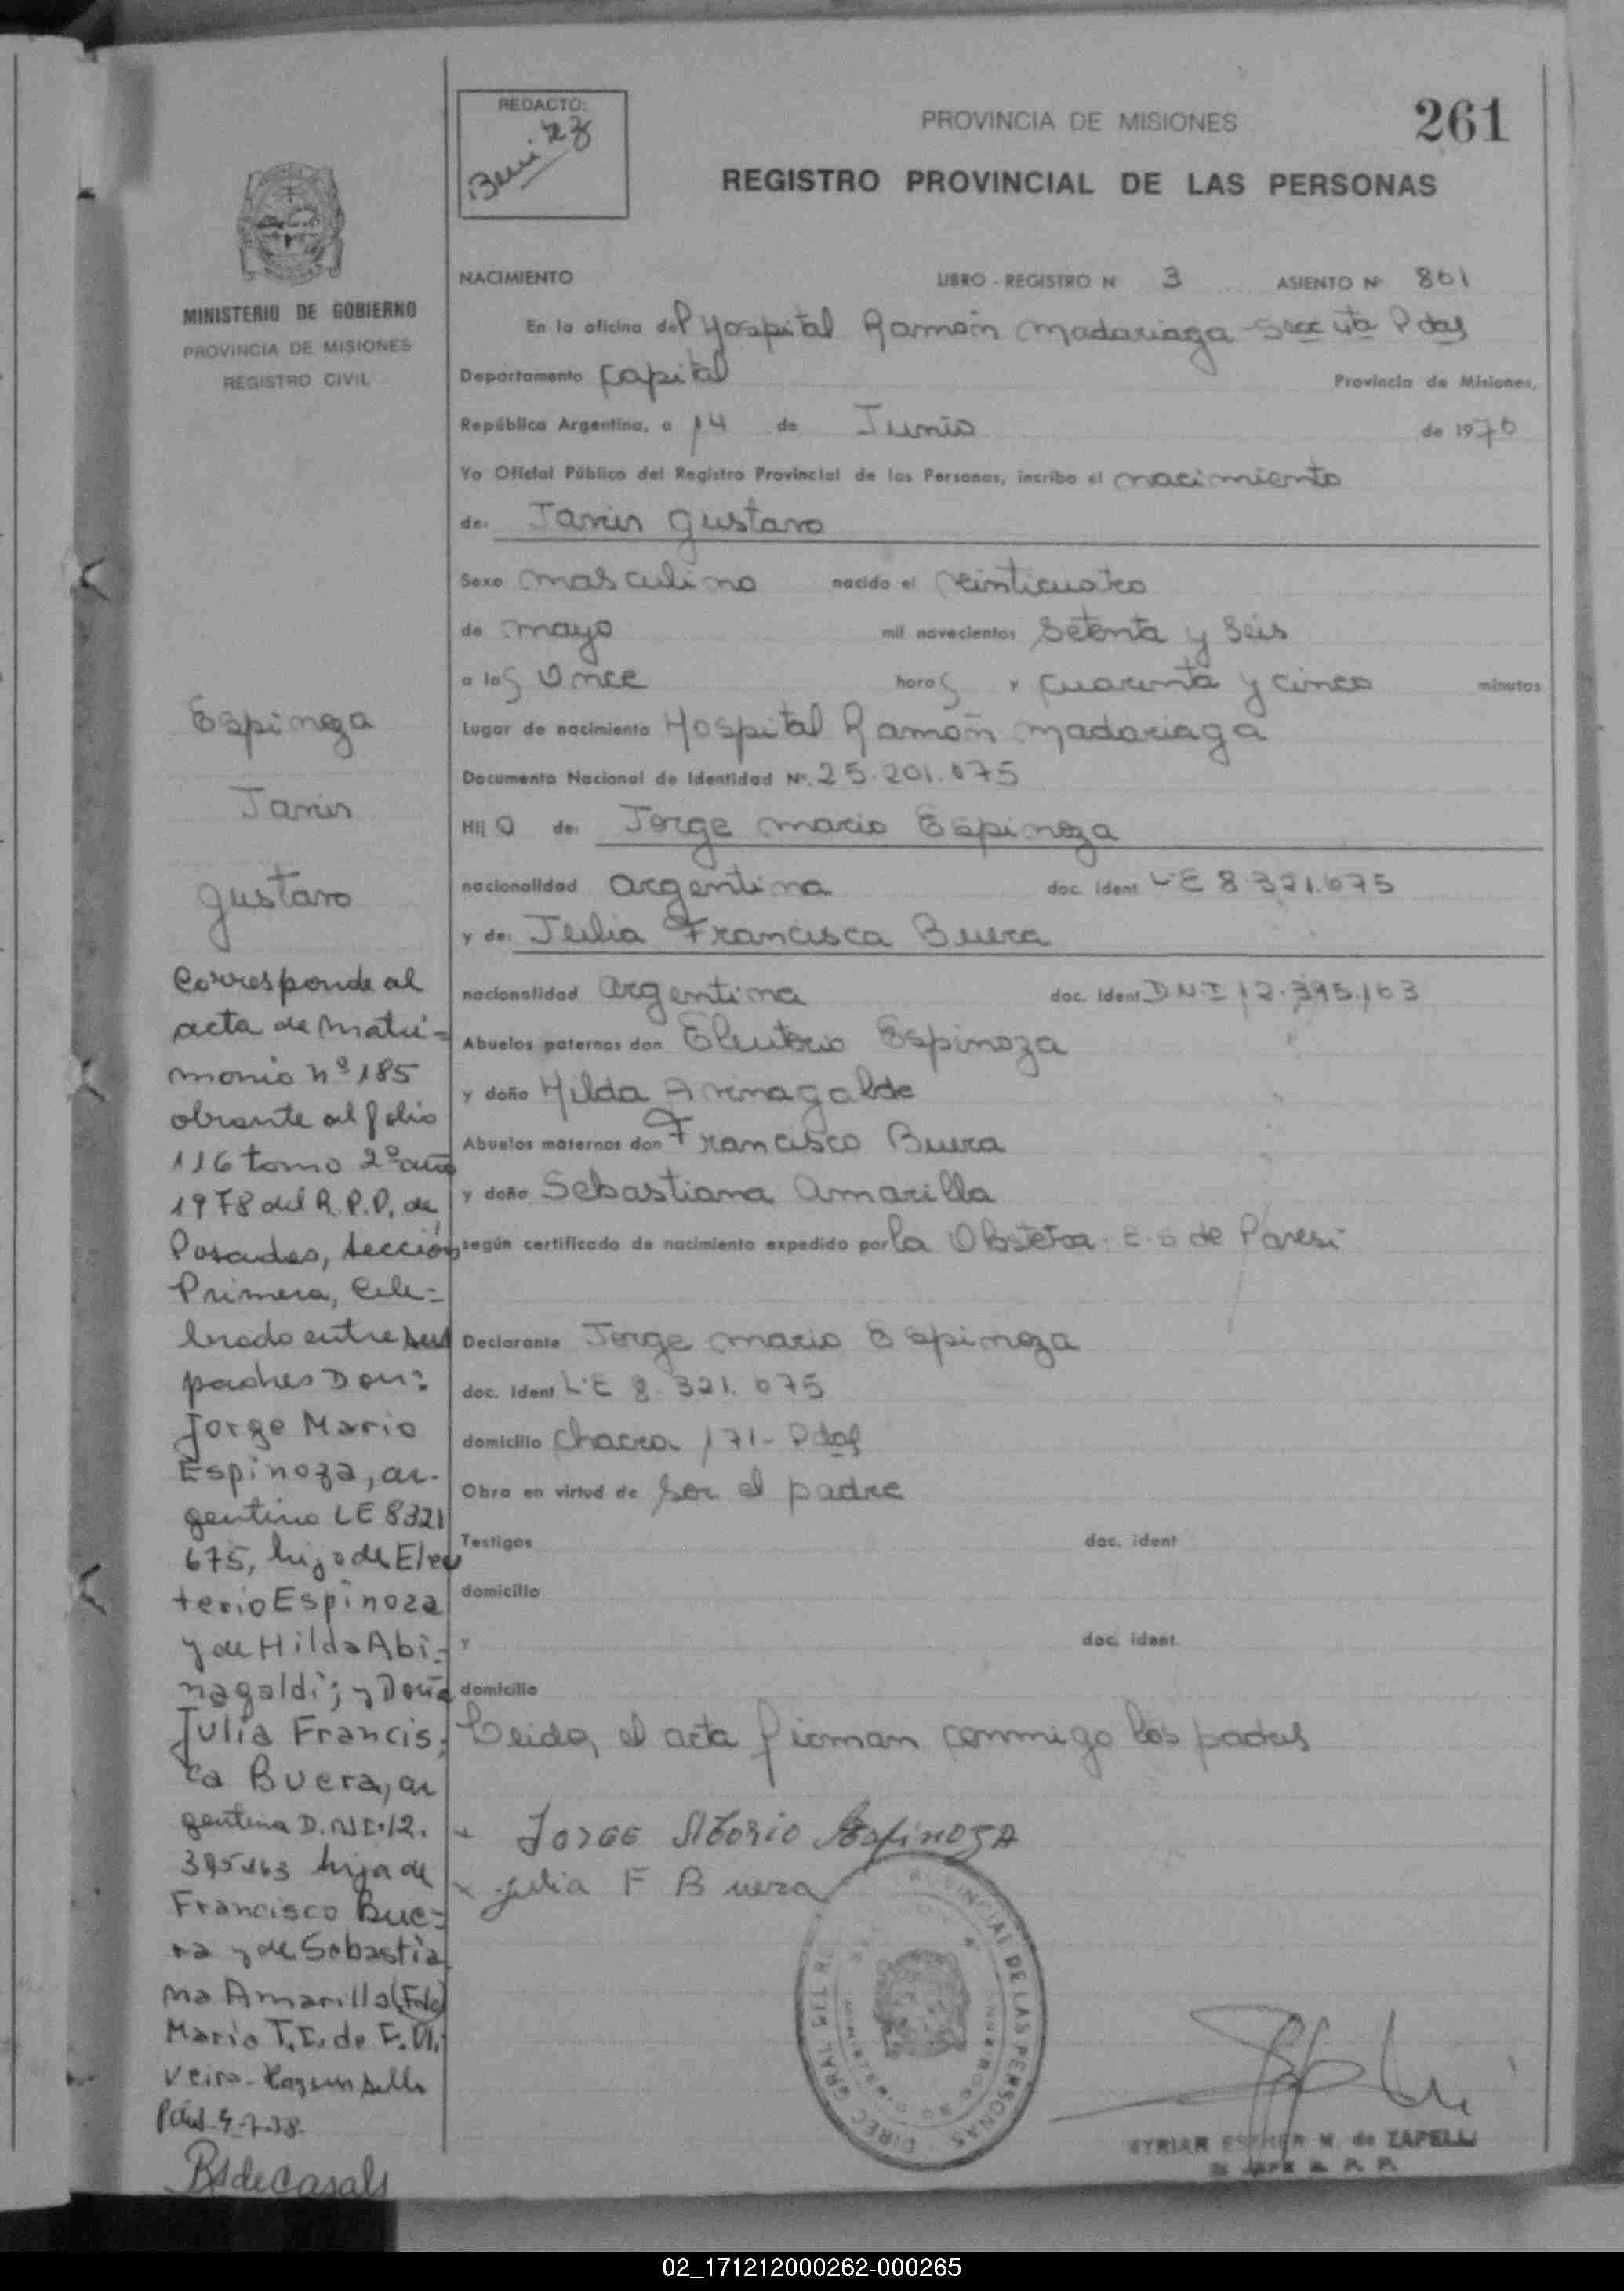 REDACTO:
Beni 23
PROVINCIA DE MISIONES
261
REGISTRO PROVINCIAL DE LAS PERSONAS
MINISTERIO DE GOBIERNO
PROVINCIA DE MISIONES
REGISTRO CIVIL
NACIMIENTO LIBRO - REGISTRO Nº 3 ASIENTO Nº 861
En la oficina del Hospital Ramón Madariaga - Secc 4ta Pdas
Departamento Capital Provincia de Misiones,
República Argentina, a 14 de Junio de 1976
Yo Oficial Público del Registro Provincial de las Personas, inscribo el nacimiento
de: Javier Gustavo
Sexo masculino nacido el veinticuatro
de mayo mil novecientos setenta y seis
a las Once horas y cuarenta y cinco minutos
Lugar de nacimiento Hospital Ramón Madariaga
Documento Nacional de Identidad Nº. 25.201.675
Hijo de: Jorge Mario Espinoza
nacionalidad argentina doc. ident LE 8.321.675
y de: Julia Francisca Buera
nacionalidad argentina doc. ident DNI 12.395.163
Abuelos paternos don Eleuterio Espinoza
y doña Hilda
Abuelos maternos don Francisco Buera
y doña Sebastiana Amarilla
según certificado de nacimiento expedido por la Obstetra. E.S de Paresi
Declarante Jorge Mario Espinoza
doc. ident LE 8.321.675
domicilio Chacra 171- Pdas
Obra en virtud de ser el padre
Testigos doc. ident
domicilio
y doc. ident.
domicilio
Leida, el acta firman conmigo los padres
Jorge Mario Espinoza
Julia F Buera
Espinoza
Javier
Gustavo
Corresponde al
acta de Matri=
monio nº 185
obrante al folio
116 tomo 2º año
1978 del R.P.P. de
Posadas, Sección
Primera, Cele=
brado entre sus
padres Don:
Jorge Mario
Espinoza, ar-
gentino LE 8321
675, hijo de Eleu
terio Espinoza
y de Hilda Abi-
nagaldi; y Doña
Julia Francis,
ca Buera, ar
gentina D.N.I.12.
395163 hija de
Francisco Bue=
ra y de Sebastia
na Amarilla (Fdo)
Maria T. I. de F. Oli
veira-
Pdas 4-7-78
Bs de Casals
DIREC GRAL DEL REG PROVINCIAL DE LAS PERSONAS
MYRIAR ESTHER M. de ZAPELLI
02_171212000262-000265